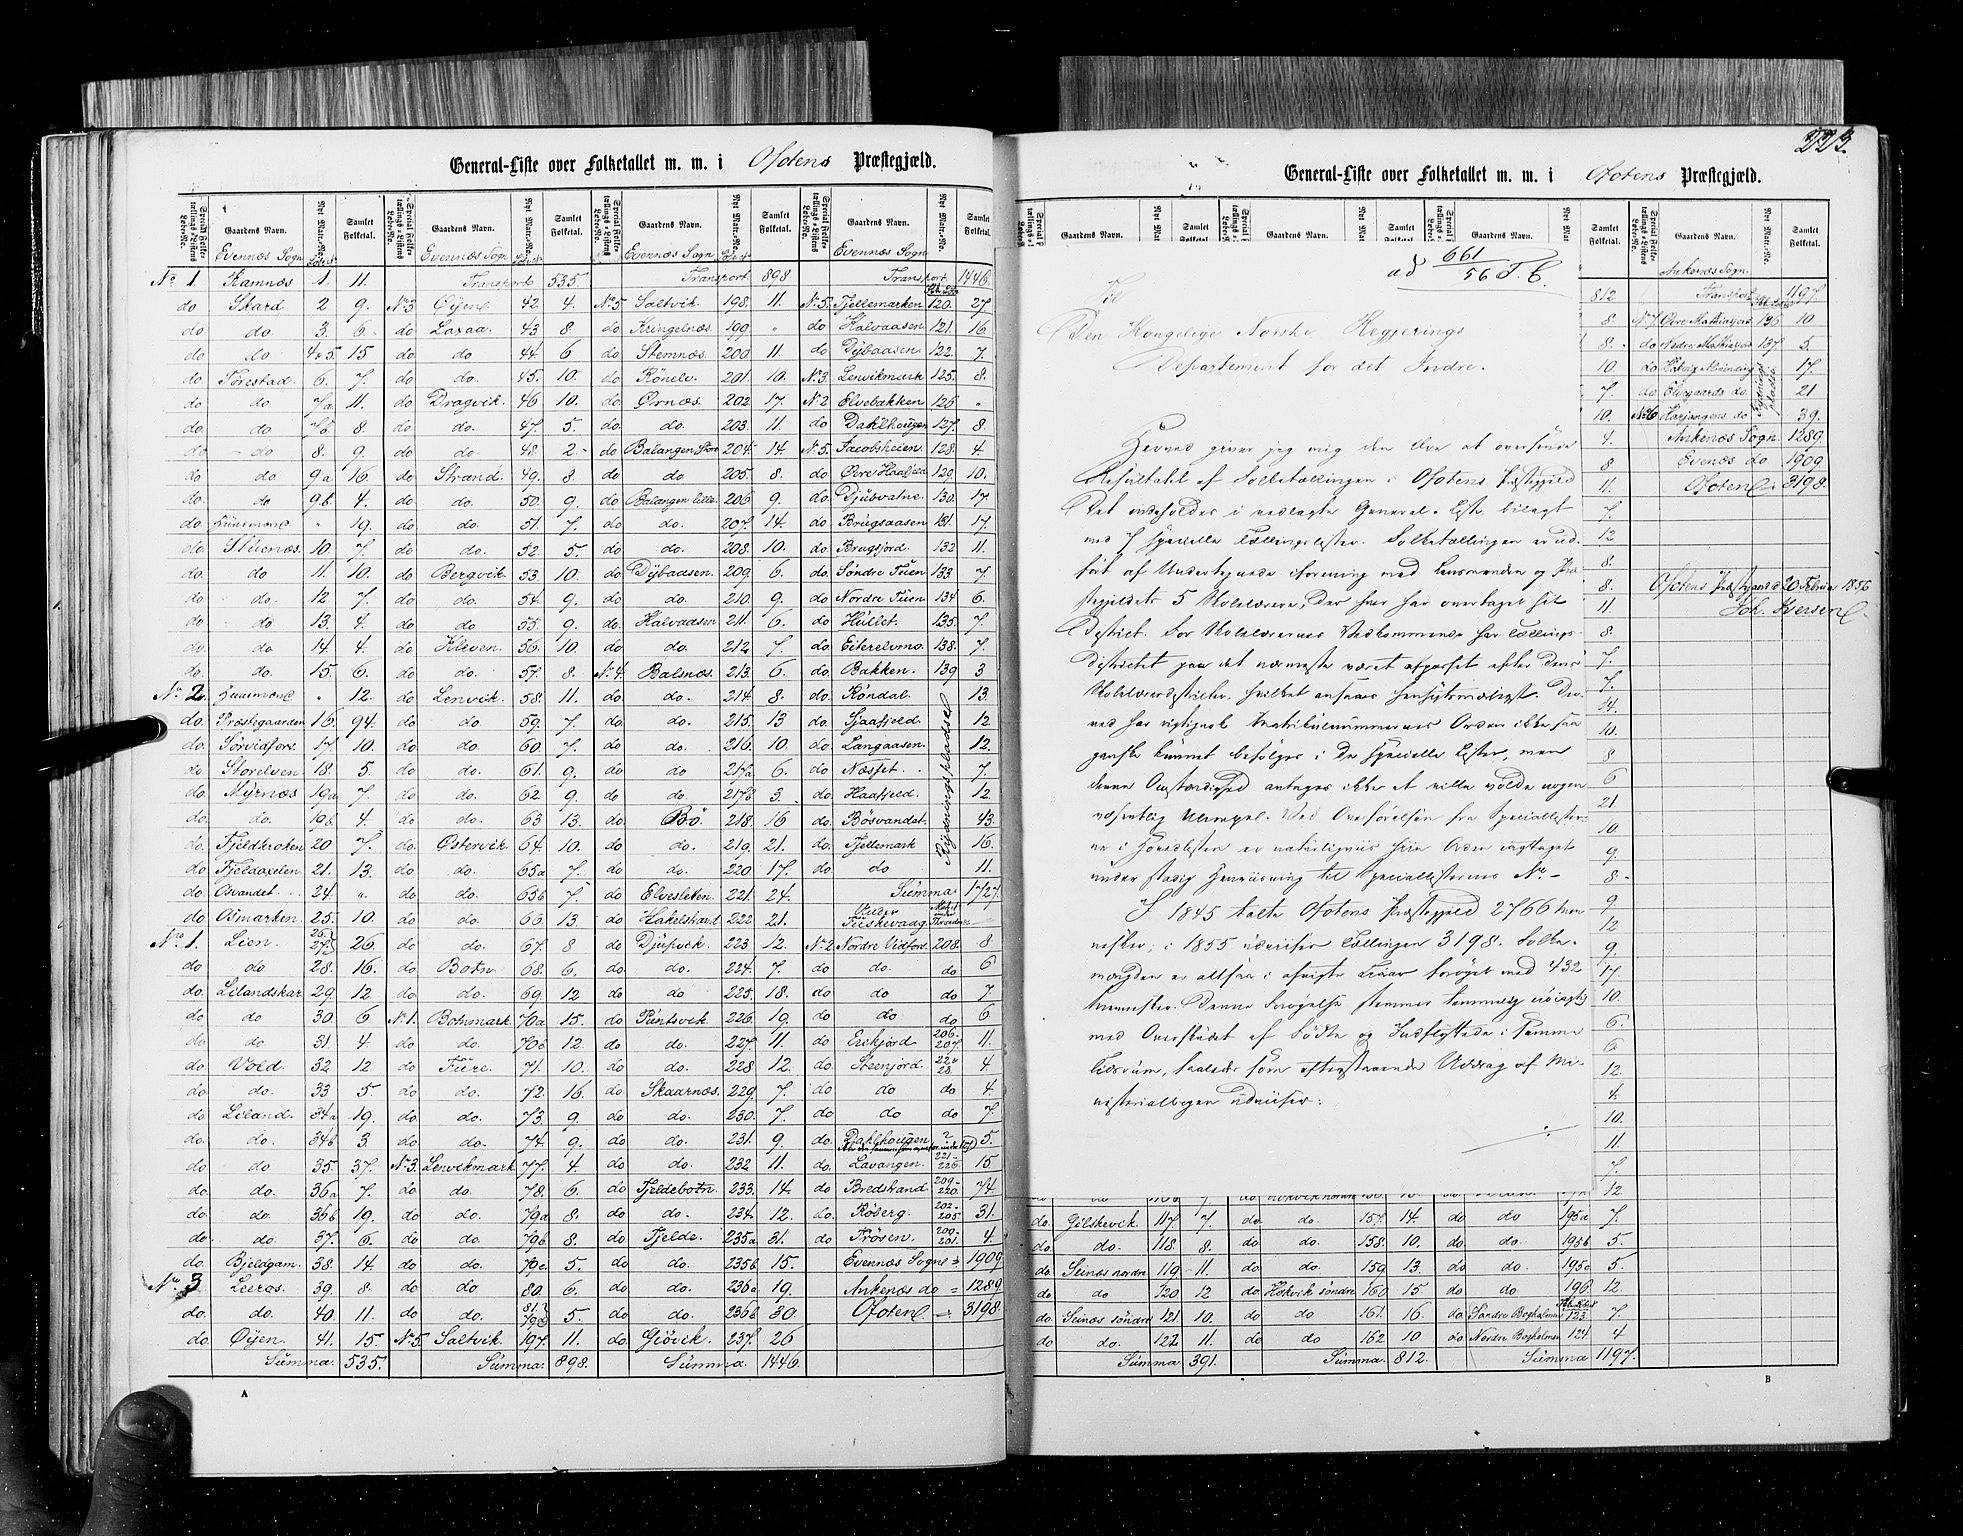 General-Liste over Folketallet m. m. i Ofotens Præstegjæld.
Gaardens Navn. Samlet Folketal. Gaardens Navn. Samlet Folketal. Gaardens Navn. Samlet Folketal. Gaardens Navn. Samlet Folketal.
Evennæs Sogn Evennæs Sogn Evennæs Sogn Evennæs Sogn
No 1. Ramnæs 1 11. Transport 535 Transport 898 Transport 1446.
do Skard 2 9. No 3 Øyen 42 4. No 5 Saltvik 198. 11. No 5. Fjellemarken 120. 27
do do 3. 6. do Laxaa. 43 8. do Kringelnæs. 199 " do Halvaasen 121. 16
do do 4 & 5. 15 do do 44. 6 do Stemnæs. 200 11. do Dybaasen 122. 7.
do Forestad. 6. 7. do do. 45. 10. do Rönelv. 201. 10. No 3. Lenvikmark 125. 8.
do do 7a 11. do Dragvik. 46 10. do Ørnæs. 202 17. No 2 Elvebakken 126 "
do do 7b 8. do do. 47. 5. do do. 203. 11. do Dahlhougen 127. 8
do do 8. 9. do do 48 2 do Balangen Store 204 14 No 5. Jacobsheien 128. 4
do do 9a 16. do Strand. 49. 8. do do 205. 8. do Øvre Haafjeld 129. 10.
do do 9b. 4. do do. 50. 9. do Balangen lille 206 9. do Djubvatne. 130. 17
do Huusmænd " 19. do do. 51. 7. do do. 207. 14. do Brugsaasen 131. 17.
do. Stuenæs. 10. 7. do do. 52. 5. do do. 208. 10. do. Brugsjord. 132 11.
do. do 11. 10. do Bergvik. 53. 10. do Dybaasen. 209. 6. do. Søndre Tuen 133 7.
do. do 12 7. do do. 54. 9. do do. 210. 9. do Nordre Tuen 134 6.
do. do 13. 4 do do. 55. 9. do Halvaasen 211. 6. do Hullet. 135. 7.
do do. 14 4. do Kleven. 56. 10. do do. 212. 7. do. Eiterelvmo. 138. 7.
do. do. 15. 6. do do. 57. 8. No 4. Balsnæs. 213. 6. do Bakken. 139 3
No. 2. Huusmænd " 12. do Lenvik. 58. 11. do do. 214. 8. do Röndal. 13.
do. Præstegaarden 16. 94. do do 59. 7. do do. 215. 13 do Gaafjeld 12.
do. Sörvidfors. 17. 10. do do. 60. 7. do do. 216. 10. do Langaasen. 12.
do Storelven 18. 5. do do. 61. 9. do do 217a 6. do. Næsset. 7.
do Myrnæs 19a 7. do do. 62. 9. do do. 217b 3. do. Haafjeld. 12
do. do. 19b. 4. do do. 63 13. do Bö. 218. 16 do. Bösvandet. 43.
do. Fjeldkroken 20 7. do Østervik. 64. 10. do do. 219. 21. do Fjellemark 16.
do Fjeldaxelen 21. 13. do do. 65a 7. do do. 220 17. do do 11.
Rydningspladse
do Osvandet 24. " do do. 65b 7. do Elvesletten. 221. 24. Summa. 1727.
do Osmarken 25. 10. do do. 66. 13 do Hakelstrand 222 21.
No. 1. Lien. 26. 27. 26. do do. 67. 8 do Djupvik. 223 12. No 2. Nordre Vidfors. 208. 8
do do 28. 16. do Botn. 68. 6. do do. 224. 7. do do. do 6
do. Lilandskar 29. 12 do do. 69. 12 do do 225. 18. do do do 7
do do 30. 6 No 1. Botnmark 70a 15. do Puntsvik. 226. 19. do do do 6
do do 31 4. do do. 70b 12. do do. 227. 11. do Erikjord 206. 207. 11.
do. Vold. 32 12 do Fure. 71. 10. do do. 228 12. do. Steenjord. 4
do do. 33 5. do do. 72. 16 do Skaarnæs. 229. 7. do do do 4.
do. Liland. 34a 19. do do. 73. 9. do do. 230. 7. do do do 7.
do. do. 34b 3. do do 74. 9. do do. 231. 9. do Dahlhougen ? 5.
do. do 35. 37. No 3. Lenvikmark 77. 4. do do. 232 11. do Lavangen. 15.
do. do. 36a 7. do do. 78. 6. do Fjeldebotn. 233. 14. do Bredstrand 209-220. 74.
do. do. 36b 19. do do. 79a 8. do do. 234. 12. do. Röberg. 202-205 31.
do. do. 37. 6. do do. 79b 8. do Fjelde. 235a 31. do Trösen. 200-201. 4.
do Bjeldgam. 38. 14 do do. 79c 5. do do. 235b 15. Evennæs Sogn 1909
No. 3 Leeros. 39. 8. do do 80. 6. do do. 236a 19. Ankenæs do = 1289
do. do. 40 11. do do. 5. do do. 236b 30. Ofoten 3198.
do. Øyen. 41. 15. No 5. Saltvik 197. 11. do Giövik. 237. 26
Summa. 535. Summa. 898. Summa 1446.
A
223.
General-Liste over Folketallet m. m. i Ofotens Præstegjæld.
ad 661/56 T. C.
Til
Den Kongelige Norske Regjerings
Departement for det Indre.
Herved giver jeg mig den Ære at oversende
Resultatet af Folketællingen i Ofotens Præstegjeld
Det indeholdes i vedlagte General-Liste bilagt
med 7 specielle Tællingslister. Folketællingen er ud-
ført af Undertegnede i forening med Lensmanden og Præ-
stegjeldets 5 Skolelærere, der hver har overtaget sit
District. For Skolelærernes Vedkommende har Tællings-
districtet paa det nærmeste været afpasset efter deres
Skoledistricter, hvilket ansaaes hensigtsmæssigst. Der-
ved har rigtignok Matrikulnummernes Orden ikke saa
ganske kunnet befølges i de specielle Lister, men
denne Omstændighed antages ikke at ville volde nogen
væsentlig Ulempe. Ved Overførelsen fra Speciallister-
ne i Hovedlisten er naturligviis hiin Orden iagttaget
under stadig Henviisning til Speciallisternes No.
I 1845 talte Ofotens Præstegjeld 2766 Men-
nesker; i 1855 udviser Tællingen 3198. Folke-
mængden er altsaa i afvigte Tiaar forøget med 432
Mennesker. Denne Forøgelse stemmer temmelig nøiagtig
med Overskudet af Fødte og Indflyttede i samme
Tidsrum, saaledes som efterstaaende Uddrag af Mi-
nisterialbogen udviser:
Gaardens Navn. Samlet Folketal.
Ankenæs Sogn.
812 Transport 1197
8 No 7 Øvre Mathisjord 136 10
8 do Nedre Mathisjord 137 5.
10. do 17
7. do Elvegaards do. 21
10. No 6 Herjangens do 39.
4. Ankenæs Sogn. 1289.
8 Evenæs do 1909
11. Ofoten 3198.
7.
13
8.
8. Ofotens Præstegaard 20 Februar 1856
11. Joh. Iversen
8.
7.
7.
14.
10.
8
6
21
10.
9.
8
9
12
9.
17
10.
6.
6
12.
4.
10.
11.
7.
12
do. Gilskevik. 117. 7. do do. 157. 14. do do 195a 7.
do. 118. 8. do do. 158. 10. do do. 195b 5.
do. Seinæs nordre 119 11. do do. 159 13. do do. 195c 5
do do 120 12 do Hokvik søndre 160 15 do do. 196. 12.
do. Seinæs søndre 121. 10. do do. 161. 16 do. Søndre Bogholmen 123. 7.
do. do. 122. 11. do do 162 10 do. Nordre Bogholmen 124. 4
Summa 391. Summa. 812. Summa 1197.
B